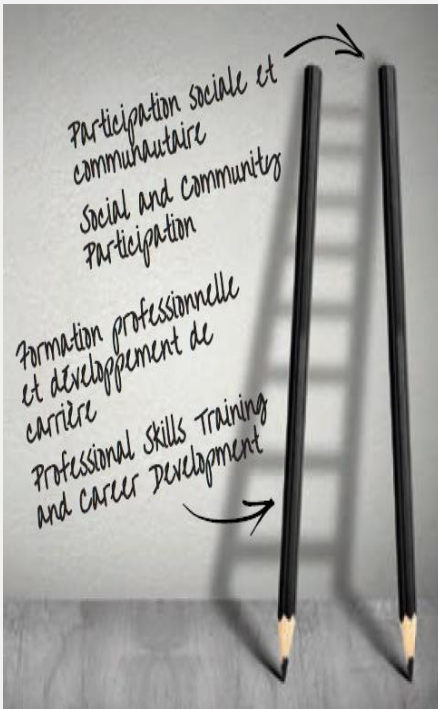 Participation sociale et
communautaire
Social and Community
Participation
Formation professionnelle
et développement de
carrière
Professional Skills Training
and Career Development